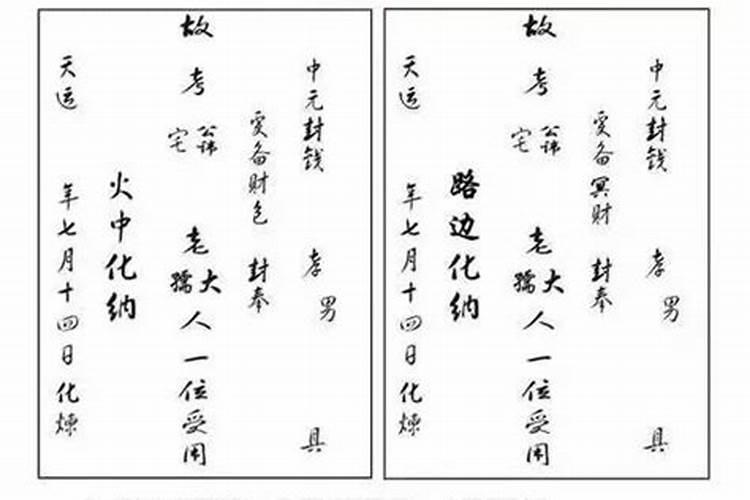 中元封钱 孝男 具
爰备财包 封奉
故考 公讳宅 老大孺人一位受用
火中化纳
天运 年七月十四日化炼
中元封钱 孝男 具
爰备冥财 封奉
故考 公讳宅 老大孺人一位受用
路边化纳
天运 年七月十四日化炼